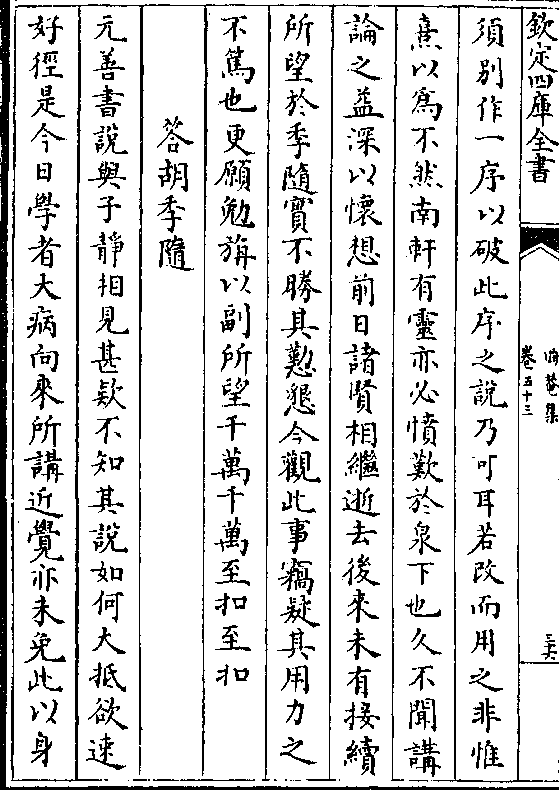 欽定四庫全書
晦菴集
卷五十三
三六
須别作一序以破此序之說乃可耳若改而用之非惟
熹以為不然南軒有靈亦必憤歎於泉下也久不聞講
論之益深以懷想前日諸賢相繼逝去後來未有接續
所望於季隨實不勝其懃懇今觀此事竊疑其用力之
不篤也更願勉旃以副所望千萬千萬至扣至扣
答胡季隨
元善書說與子靜相見甚欵不知其說如何大抵欲速
好徑是今日學者大病向來所講近覺亦未免此以身